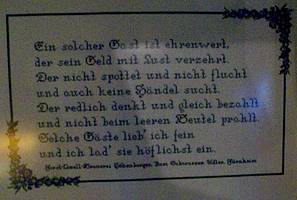 Ein solcher Gast ist ehrenwert,
der sein Geld mit Lust verzehrt.
Der nicht spottet und nicht flucht
und auch keine Händel sucht.
Der redlich denkt und gleich bezahlt
und nicht beim leeren Beutel prahlt.
Solche Gäste lieb' ich fein
und ich lad' sie höflichst ein.